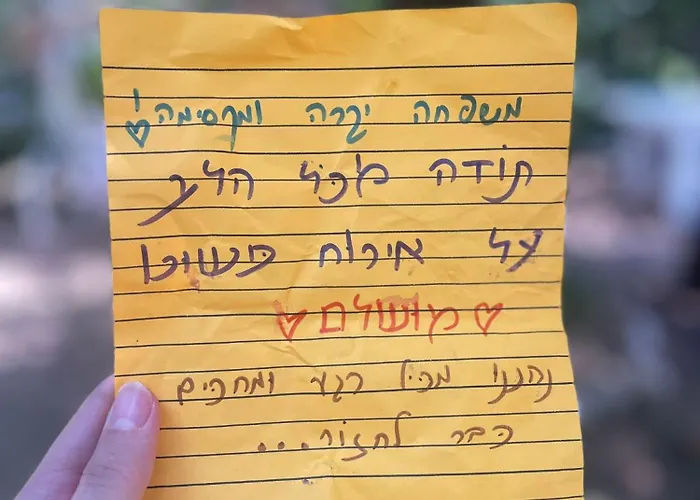 משפחה יקרה ומקסימה!
תודה מכל הלב
על אירוח פשוט
מושלם
נהננו מכל רגע ומחכים
כבר לחזור...